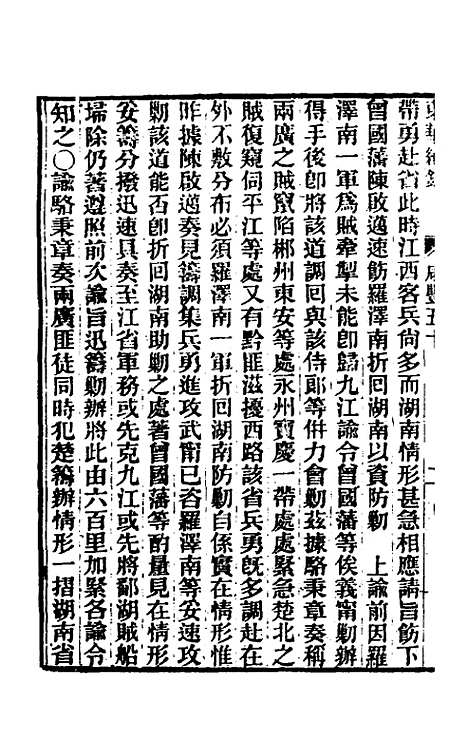 帶勇赴省此時江西客兵尙多而湖南情形甚急相應請旨飭下
曾國藩陳啟邁速飭羅澤南折回湖南以資防勦　上諭前因羅
澤南一軍爲賊牽掣未能卽歸九江諭令曾國藩等俟義甯勦辦
得手後卽將該道調回與該侍郎等倂力會勦茲據駱秉章奏稱
兩廣之賊竄陷郴州東安等處永州寶慶一帶處處緊急楚北之
賊復窺伺平江等處又有黔匪滋擾西路該省兵勇旣多調赴在
外不敷分布必須羅澤南一軍折回湖南防勦自係實在情形惟
昨據陳啟邁奏見籌調集兵勇進攻武甯已咨羅澤南等妥速攻
勦該道能否卽折回湖南助勦之處著曾國藩等酌量見在情形
妥籌分撥迅速具奏至江省軍務或先克九江或先將鄱湖賊船
埽除仍著遵照前次諭旨迅籌勦辦將此由六百里加緊各諭令
知之〇諭駱秉章奏兩廣匪徒同時犯楚籌辦情形一摺湖南省